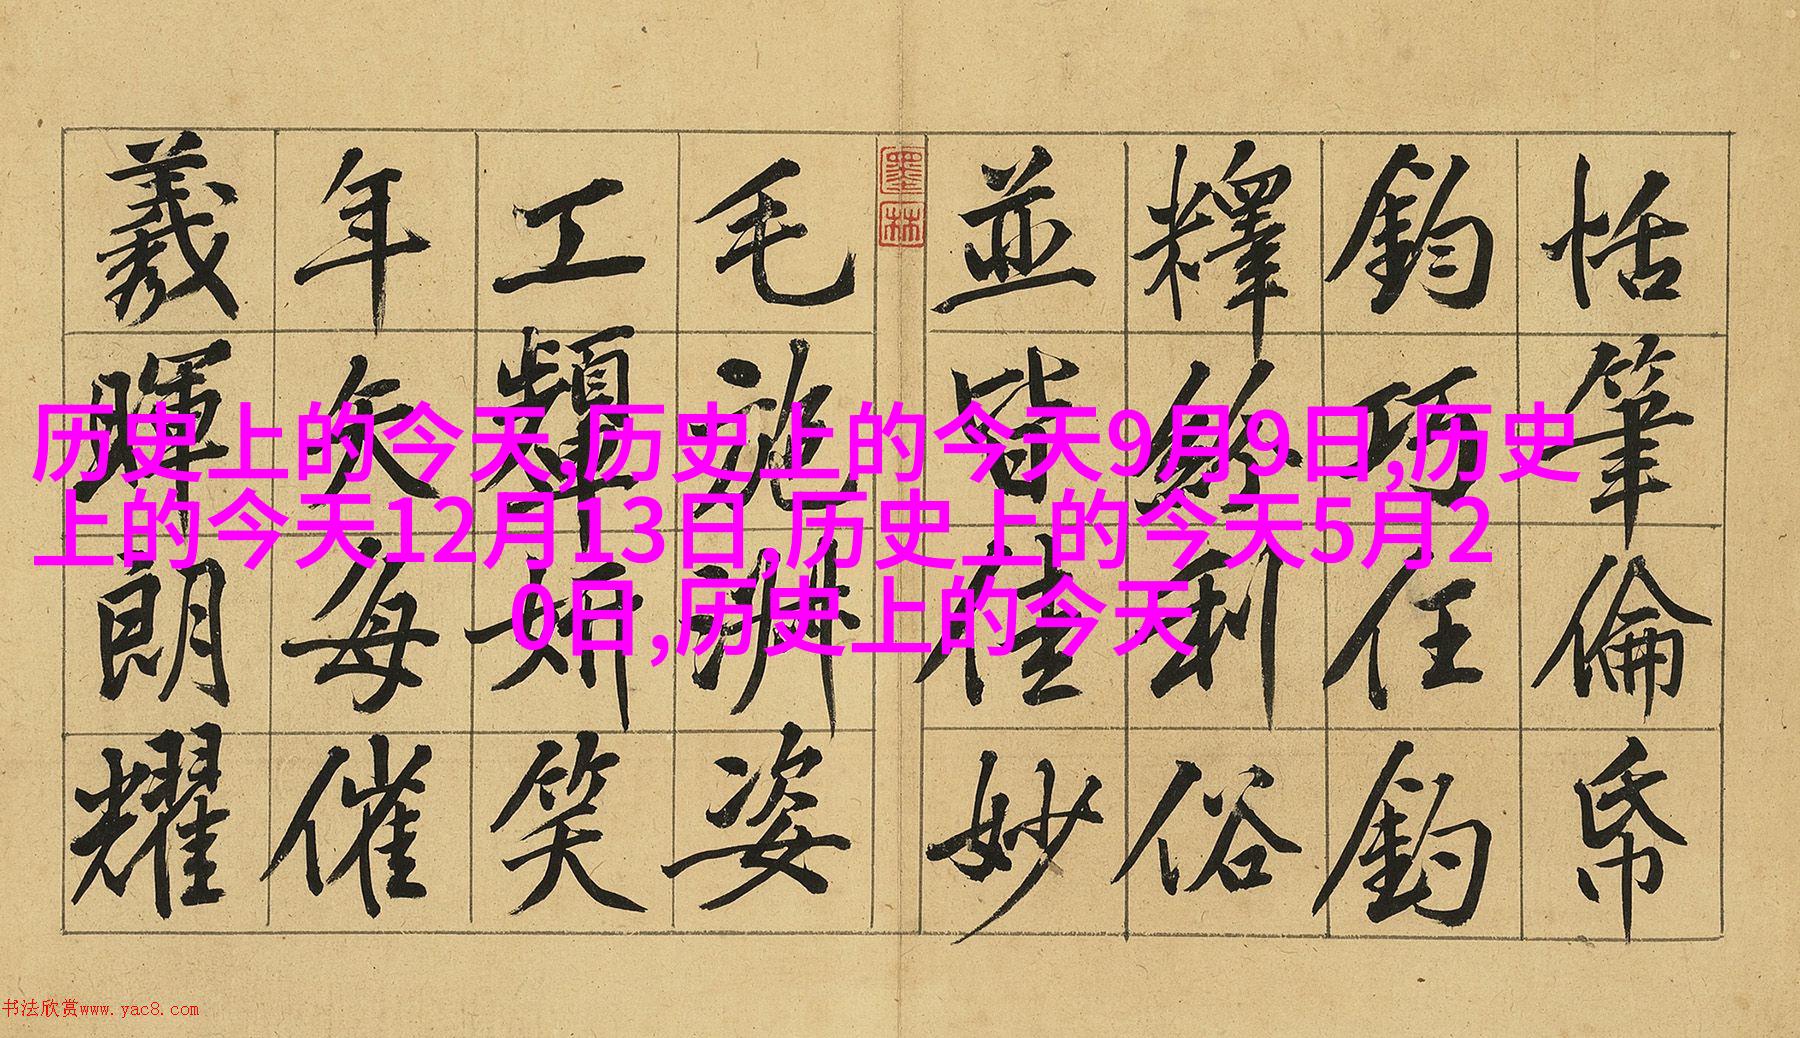 恬筆倫帋
鈞巧任釣
釋紛利俗
並皆佳妙
毛施淑姿
工顰妍笑
年矢每催
羲暉朗耀
墨林
历史上的今天,历史上的今天9月9日,历史
上的今天12月13日,历史上的今天5月2
0日,历史上的今天
书法欣赏www.yac8.com